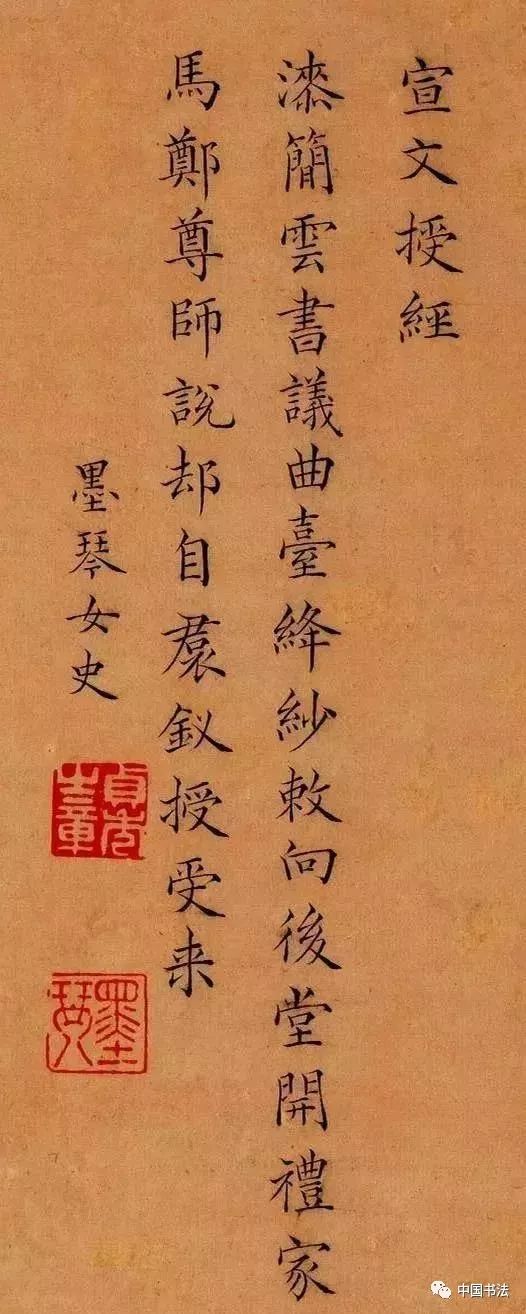 宣文授經
漆簡雲書議曲臺絳紗敕向後堂開禮家
馬鄭尊師說却自裠釵授受来
墨琴女史
中国书法